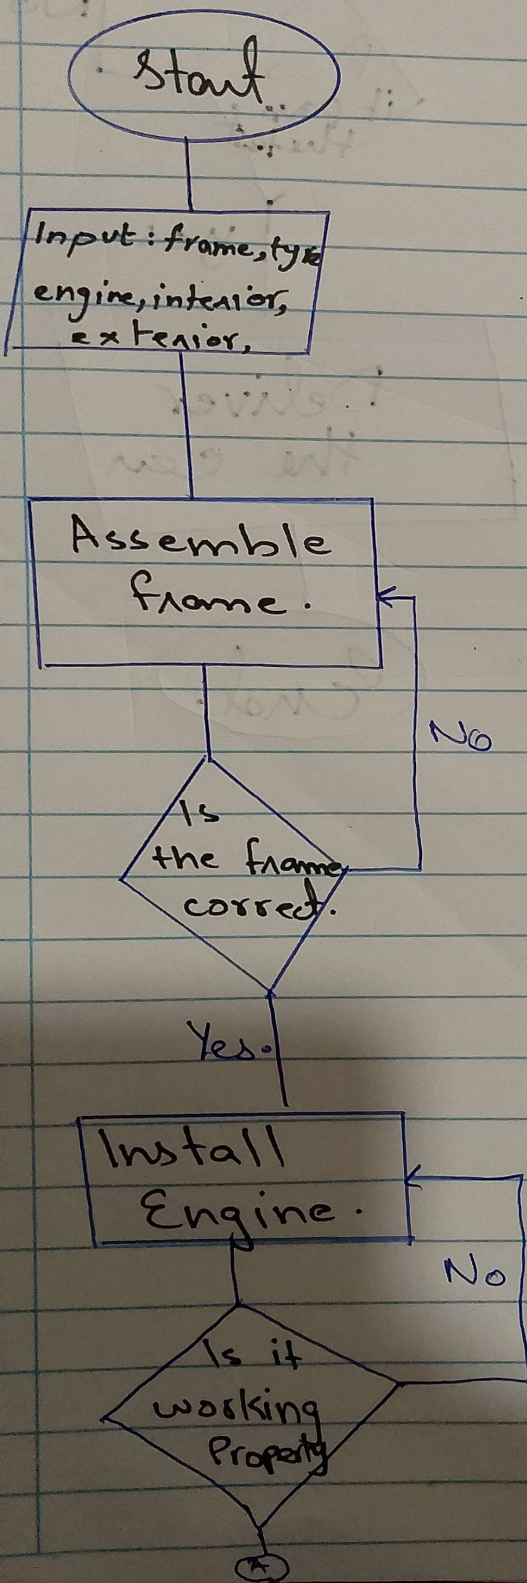 Start
Input: frame, tyre
engine, interior,
exterior,
Assemble
frame.
No
Is
the frame
correct.
Yes.
Install
Engine.
No
Is it
working
Properly
A